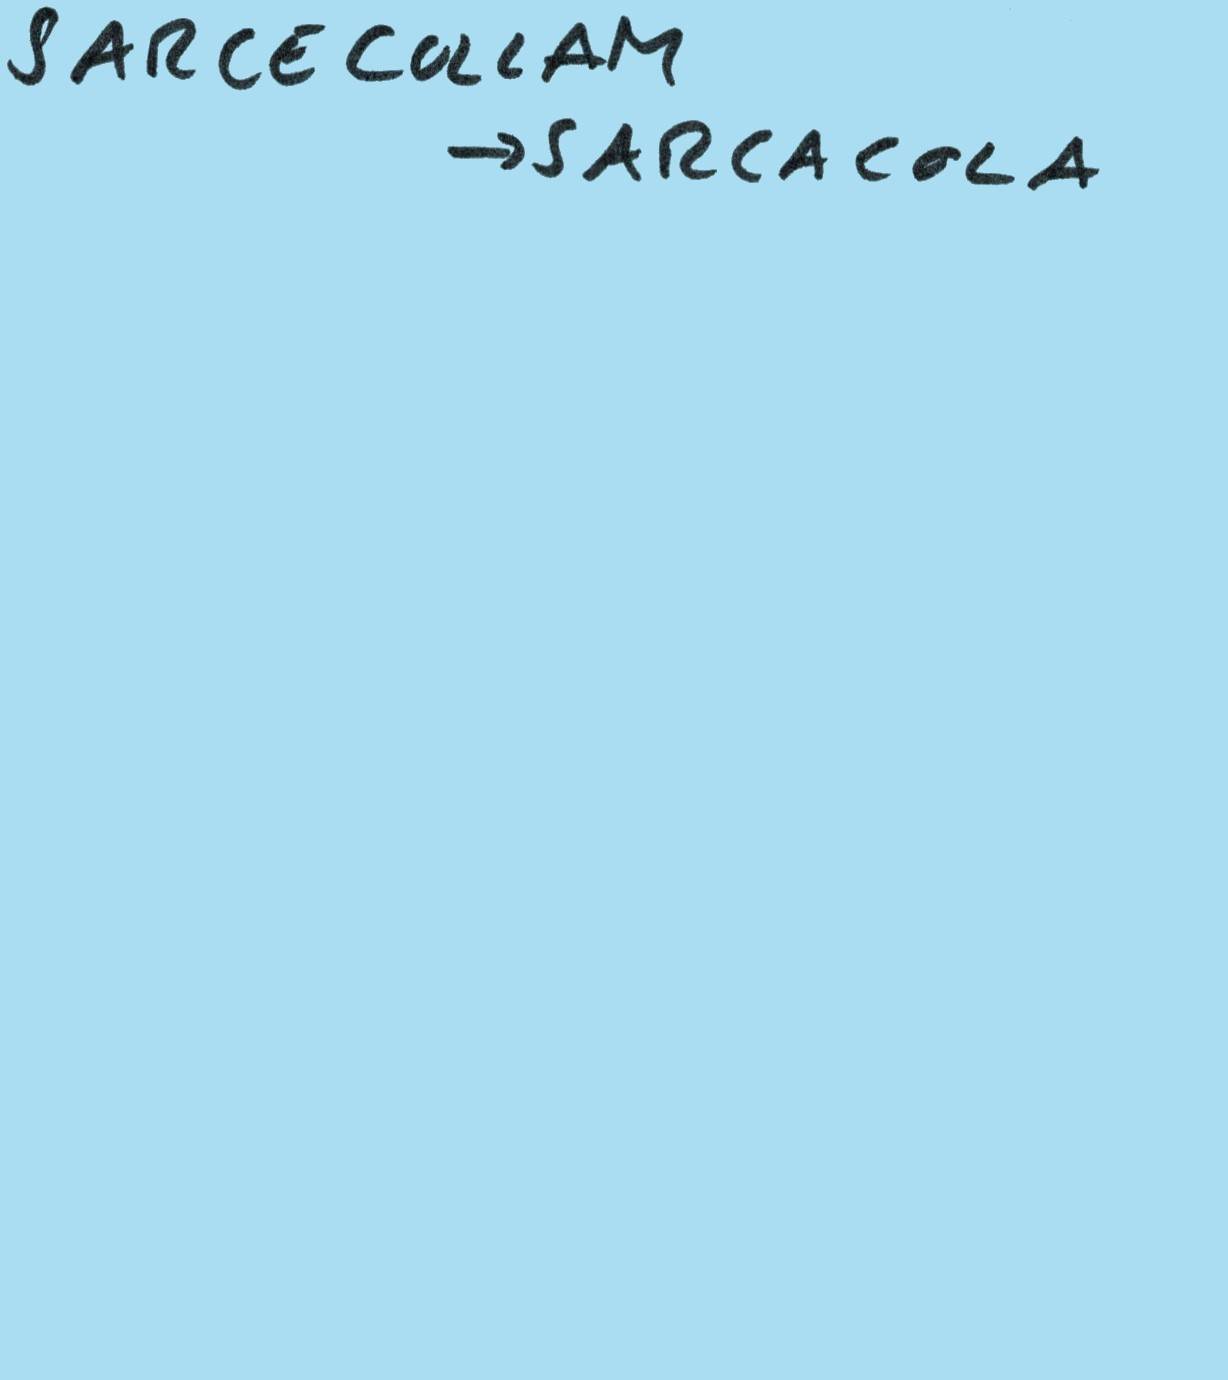 SARCECOLLAM
→SARCACOLA